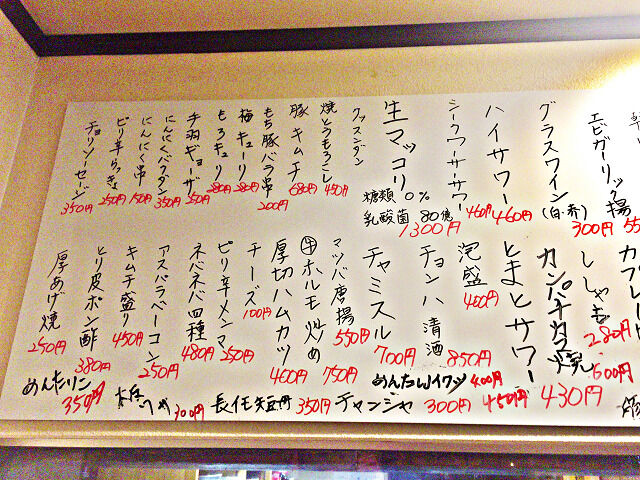 エビガーリック揚
グラスワイン(白・赤) 300円
ハイサワー 460円
シークワーサーサワー 460円
生マッコリ
糖類0%
乳酸菌80億
1300円
クッスンダン
焼とうもろこし 450円
豚キムチ 680円
もち豚バラ串 200円
梅キューリ 280円
もろキュリ 280円
手羽ギョーザ 250円
にんにくバクダン 350円
にんにく串 150円
ピリ辛らっきょ 250円
チョリソーセージ 350円
ししゃも 280円
600円
とまとサワー 450円
430円
泡盛 400円
チョンハ清酒 850円
チャミスル 700円
マツバ唐揚 550円
牛ホルモン炒め 750円
厚切ハムカツ 460円
チーズ 100円
ピリ辛メンマ 250円
ネバネバ四種 480円
アスパラベーコン 250円
キムチ盛り 450円
とり皮ポン酢 380円
厚あげ焼 250円
めんたいリン 350円
300円
350円
チャンジャ 300円
400円